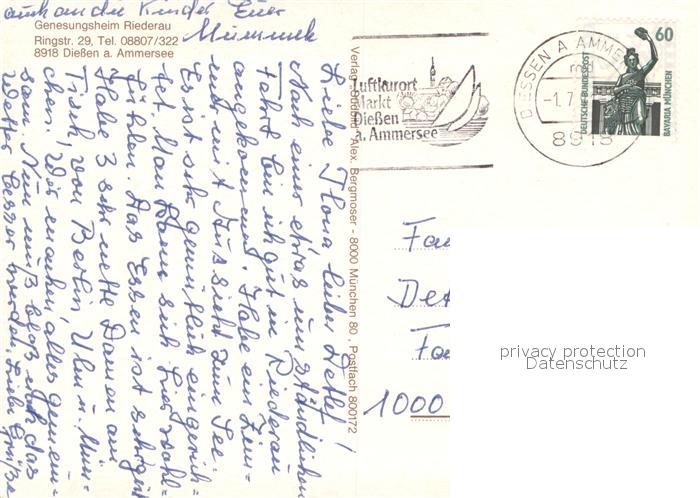 Genesungsheim Riederau
Ringstr. 29, Tel. 08807/322
8918 Dießen a. Ammersee
Liebe Ilona lieber Detlef!
Nach einer etwas umständlichen
Fahrt bin ich gut in Riederau
angekommen. Habe ein Zim-
mer mit Aussicht zum See.
Es ist sehr gemütlich eingerich-
tet. Man kann sich hier wohl-
fühlen. Das Essen ist sehr gut
Habe 3 sehr nette Damen am
Tisch, von Berlin Ulm u. Mün-
chen. Wir machen alles gemein-
sam. Nun muß bloß noch das
Wetter besser werden. Liebe Grüße
auch an die Kinder Euer
Verlag Alex. Bergmoser - 8000 München 80, Postfach 800172
Luftkurort
Markt
Dießen
a. Ammersee
DIESSEN A AMME
-1.7
8918
60
DEUTSCHE BUNDESPOST
BAVARIA MÜNCHEN
Fa
De
Fa
1000
privacy protection
Datenschutz